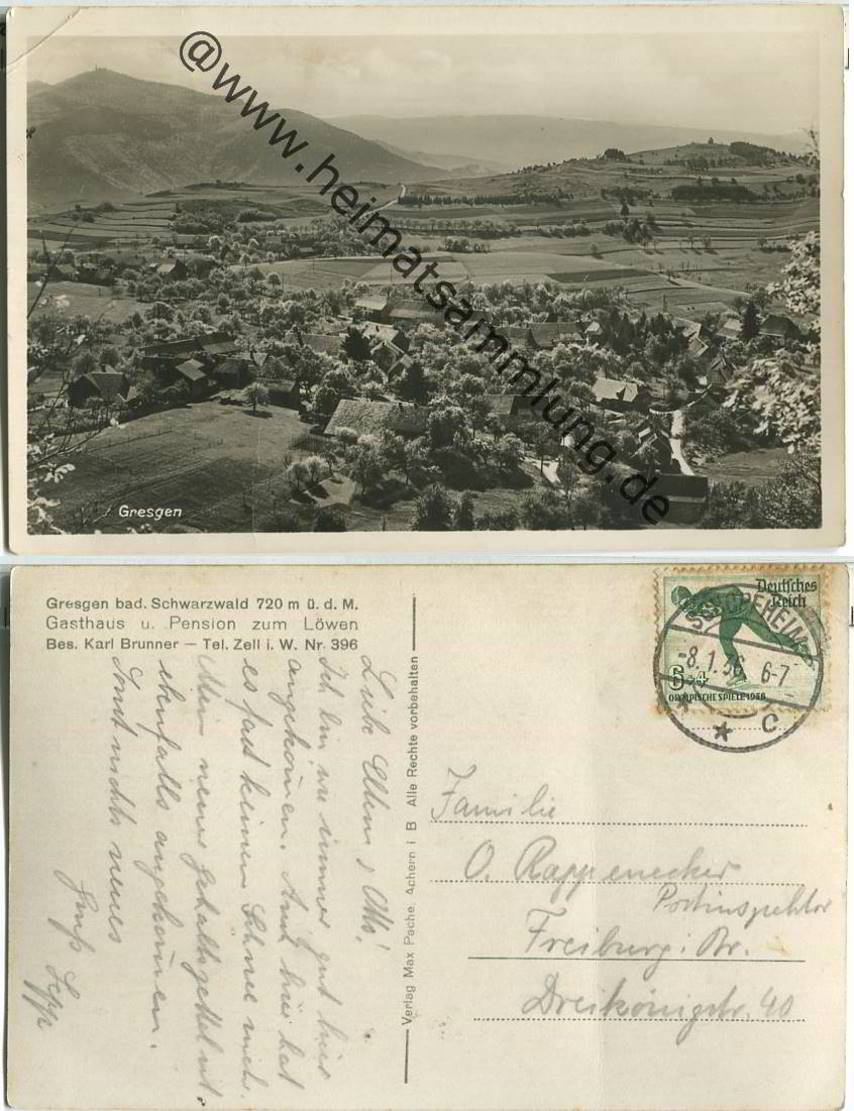 @www.heimatsammlung.de
Gresgen
Gresgen bad. Schwarzwald 720 m ü. d. M.
Gasthaus u. Pension zum Löwen
Bes. Karl Brunner — Tel. Zell i. W. Nr. 396
Liebe Eltern, Otto!
Ich bin wie immer gut hier
angekommen. Auch hier hat
es fast keinen Schnee mehr.
Mein neuer gehaltszettel ist
ebenfalls angekommen.
Sonst nichts neues
Gruß Sepp
Verlag Max Pache, Achern i B Alle Rechte vorbehalten
Deutsches
Reich
6+4
OLYMPISCHE SPIELE 1936
SCHOPFHEIM
-8.1.36 6-7
* c
Familie
O. Rappenecker
Postinspektor
Freiburg i Br.
Dreikönigstr. 40